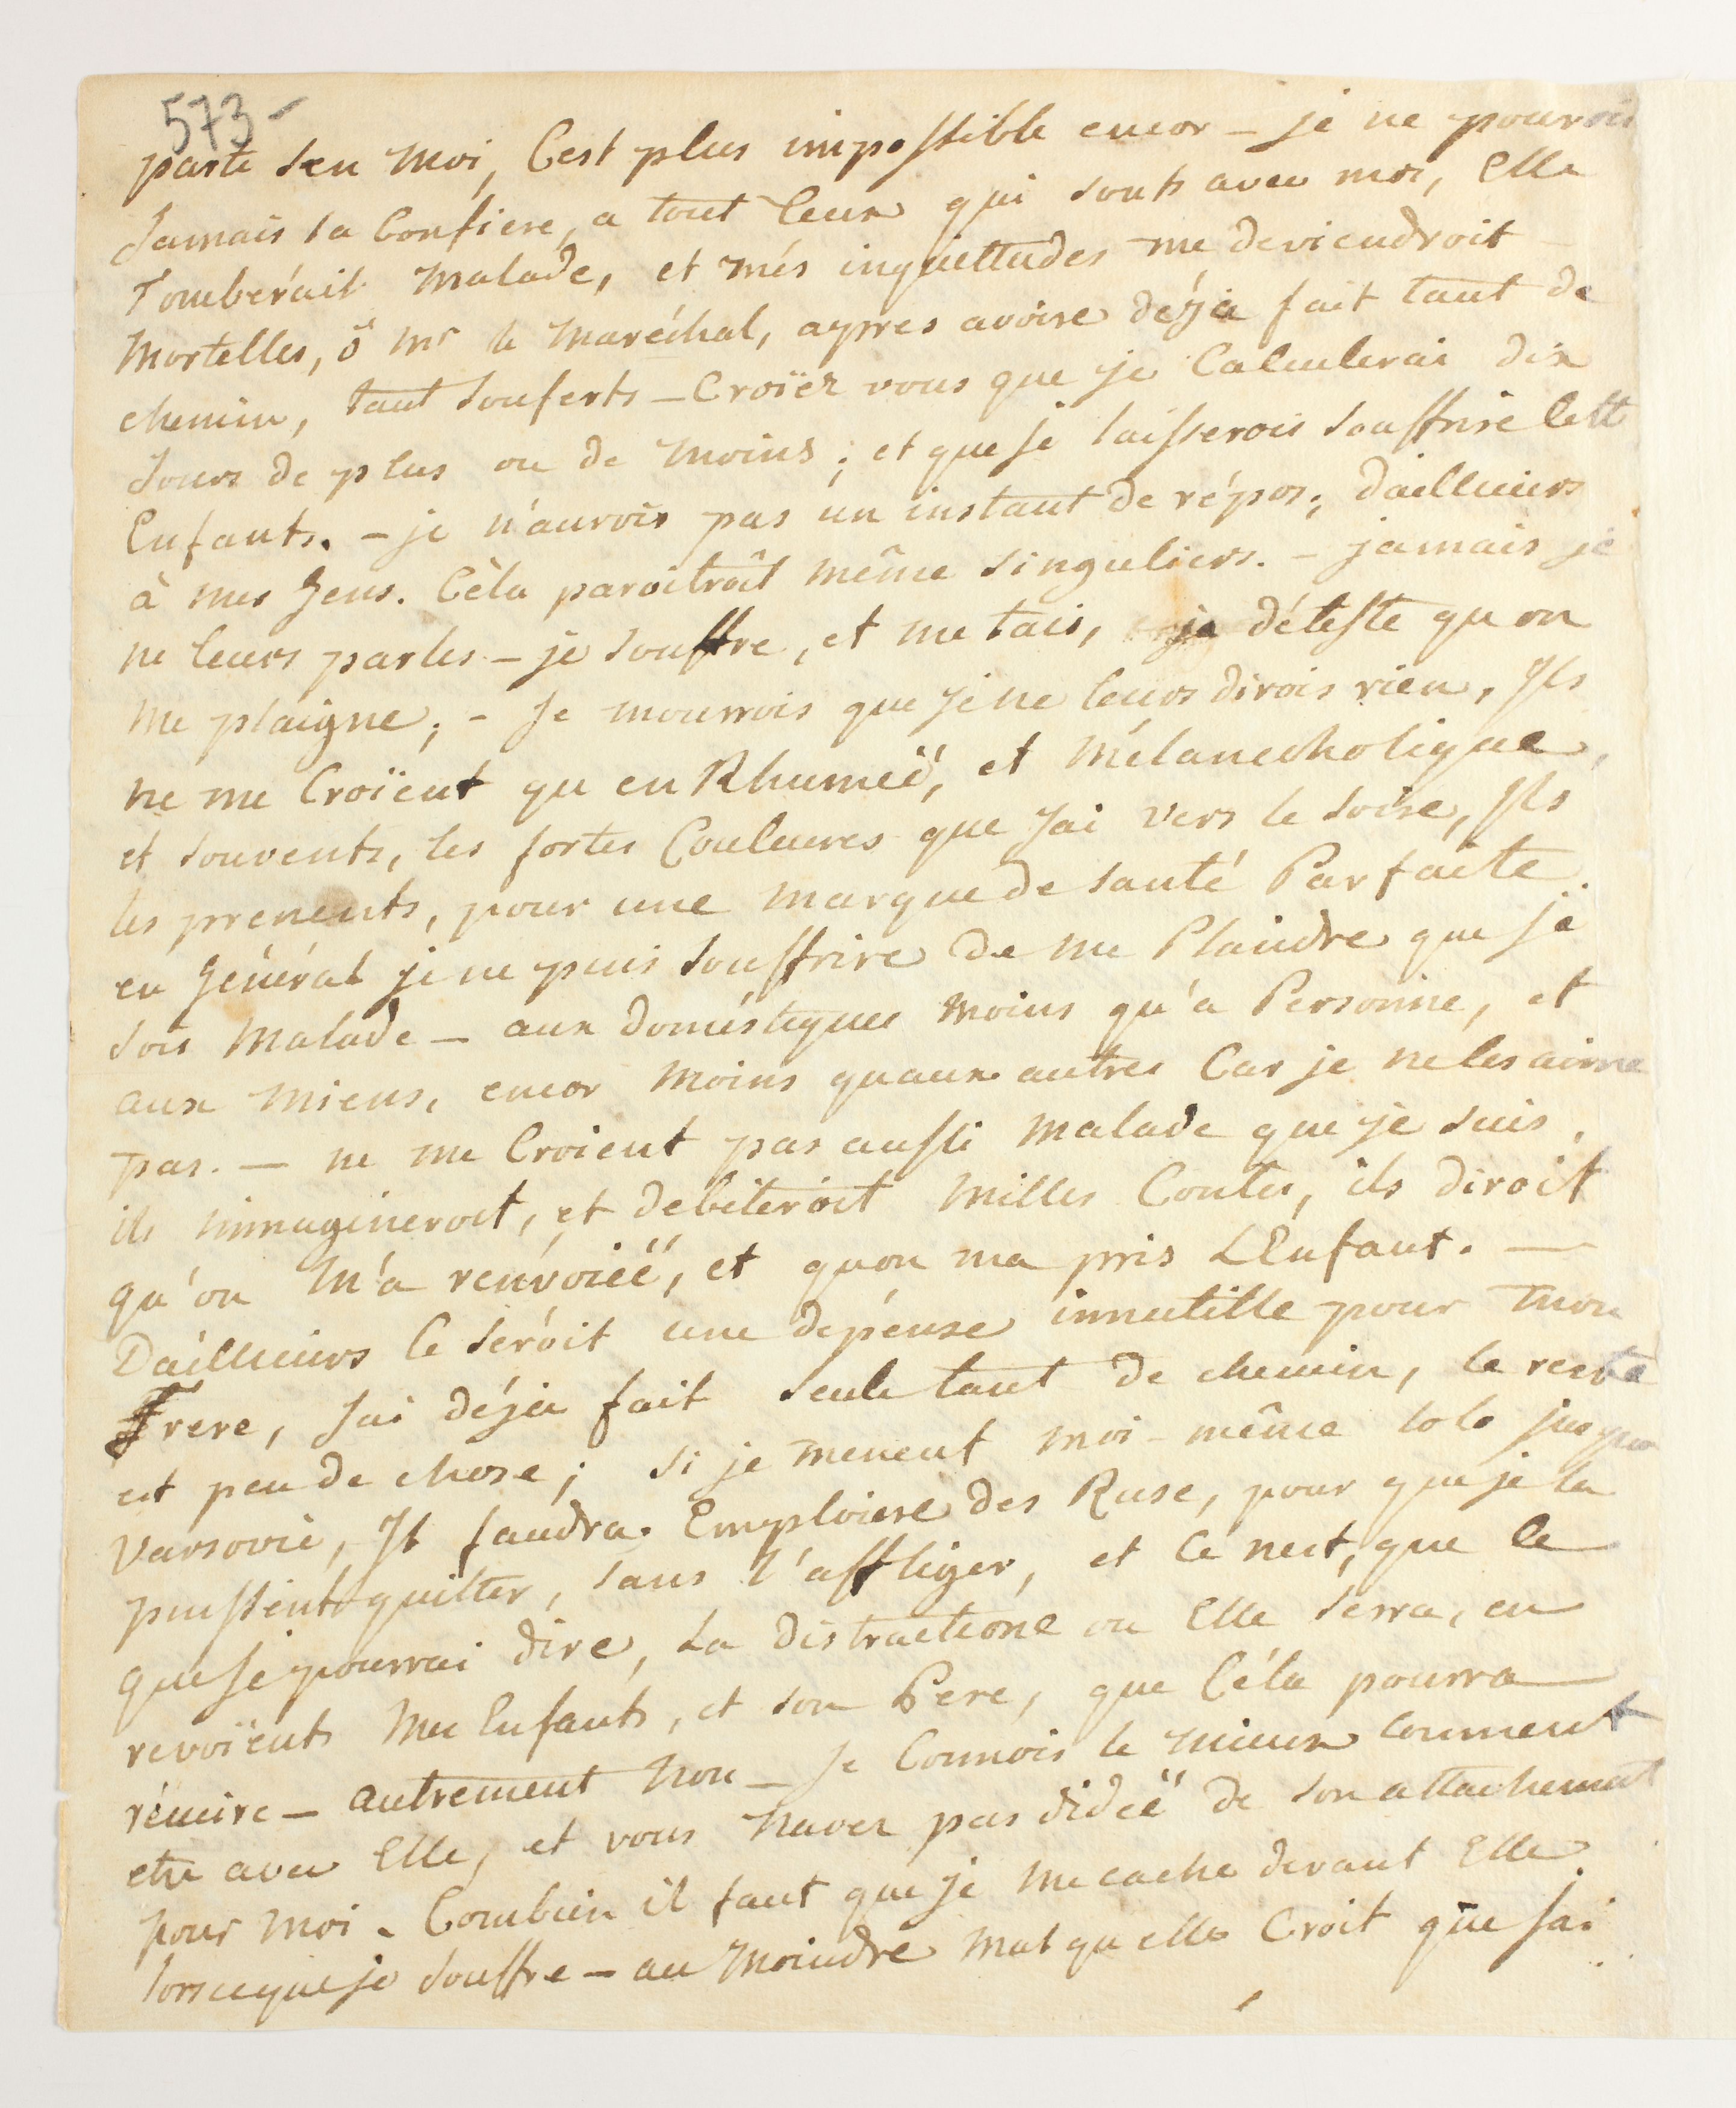 573-
parte sen moi, C'est plus impossible encor - je ne pourois
Jamais la Confiere, a tout Ceux qui sonts avec moi, Elle
Tomberait Malade, et més inquiettudes me deviendroit
Mortelles, ö Mr le Maréchal, aprres avoire déja fait tant de
chemin, tant souferts - Croïez vous que je Calculerai dix
Jours de plus ou de moins; et que je laisserois souffrire Cett
Enfants. - je n'aurois pas un instant de répos; dailleuirs
à mes Gens. Cèla paroitroît même singuliers. - jamais je
ne leurs parles - je souffre, et me tais, je déteste qu on
me plaigne; - Je mourrois que je ne leurs dirois rien, Ils
ne me Croïent qu en Rhumeë, et Mélanecholique,
et souvents, les fortes Couleures que jai vers le soire, Ils
les prenents, pour une marque de santé Parfaite.
en Général je ne puis souffrire de me Plaindre que je
sois Malade - aux doméstiques moins qu'a Personne, et
aux miens, encor moins quaux autres Car je ne les aime
pas. - ne me Croient pas aussi Malade que je suis,
ils immagineroit, et debiteroit Milles Contes, ils diroit
qu'on M'a renvoiéë, et quon ma pris L'Enfant. -
Dailleuirs Ce seroit une dépense innutille pour mon
Frere, Jai déja fait seule tant de chemin, le reste
est peu de chose; si je menent moi-même lolo jusqua
Varsovie, Il faudra Emploiere des Ruse, pour que je la
pussent quitter, sans l'affliger, et Ce nest, que le
que je pourrai dire, La distractione ou Elle serra, en
revoïent Mes Enfants, et son Pere, que Céla pourra
réuire - autrement Non - Je Connois le Mieux comment
etre avec Elle, et vous Navez pas didéë de son attachement
pour moi. Combien il faut que je me cache devant Elle
lorsceque je souffre - au Moindre Mal qu elle Croit que jai